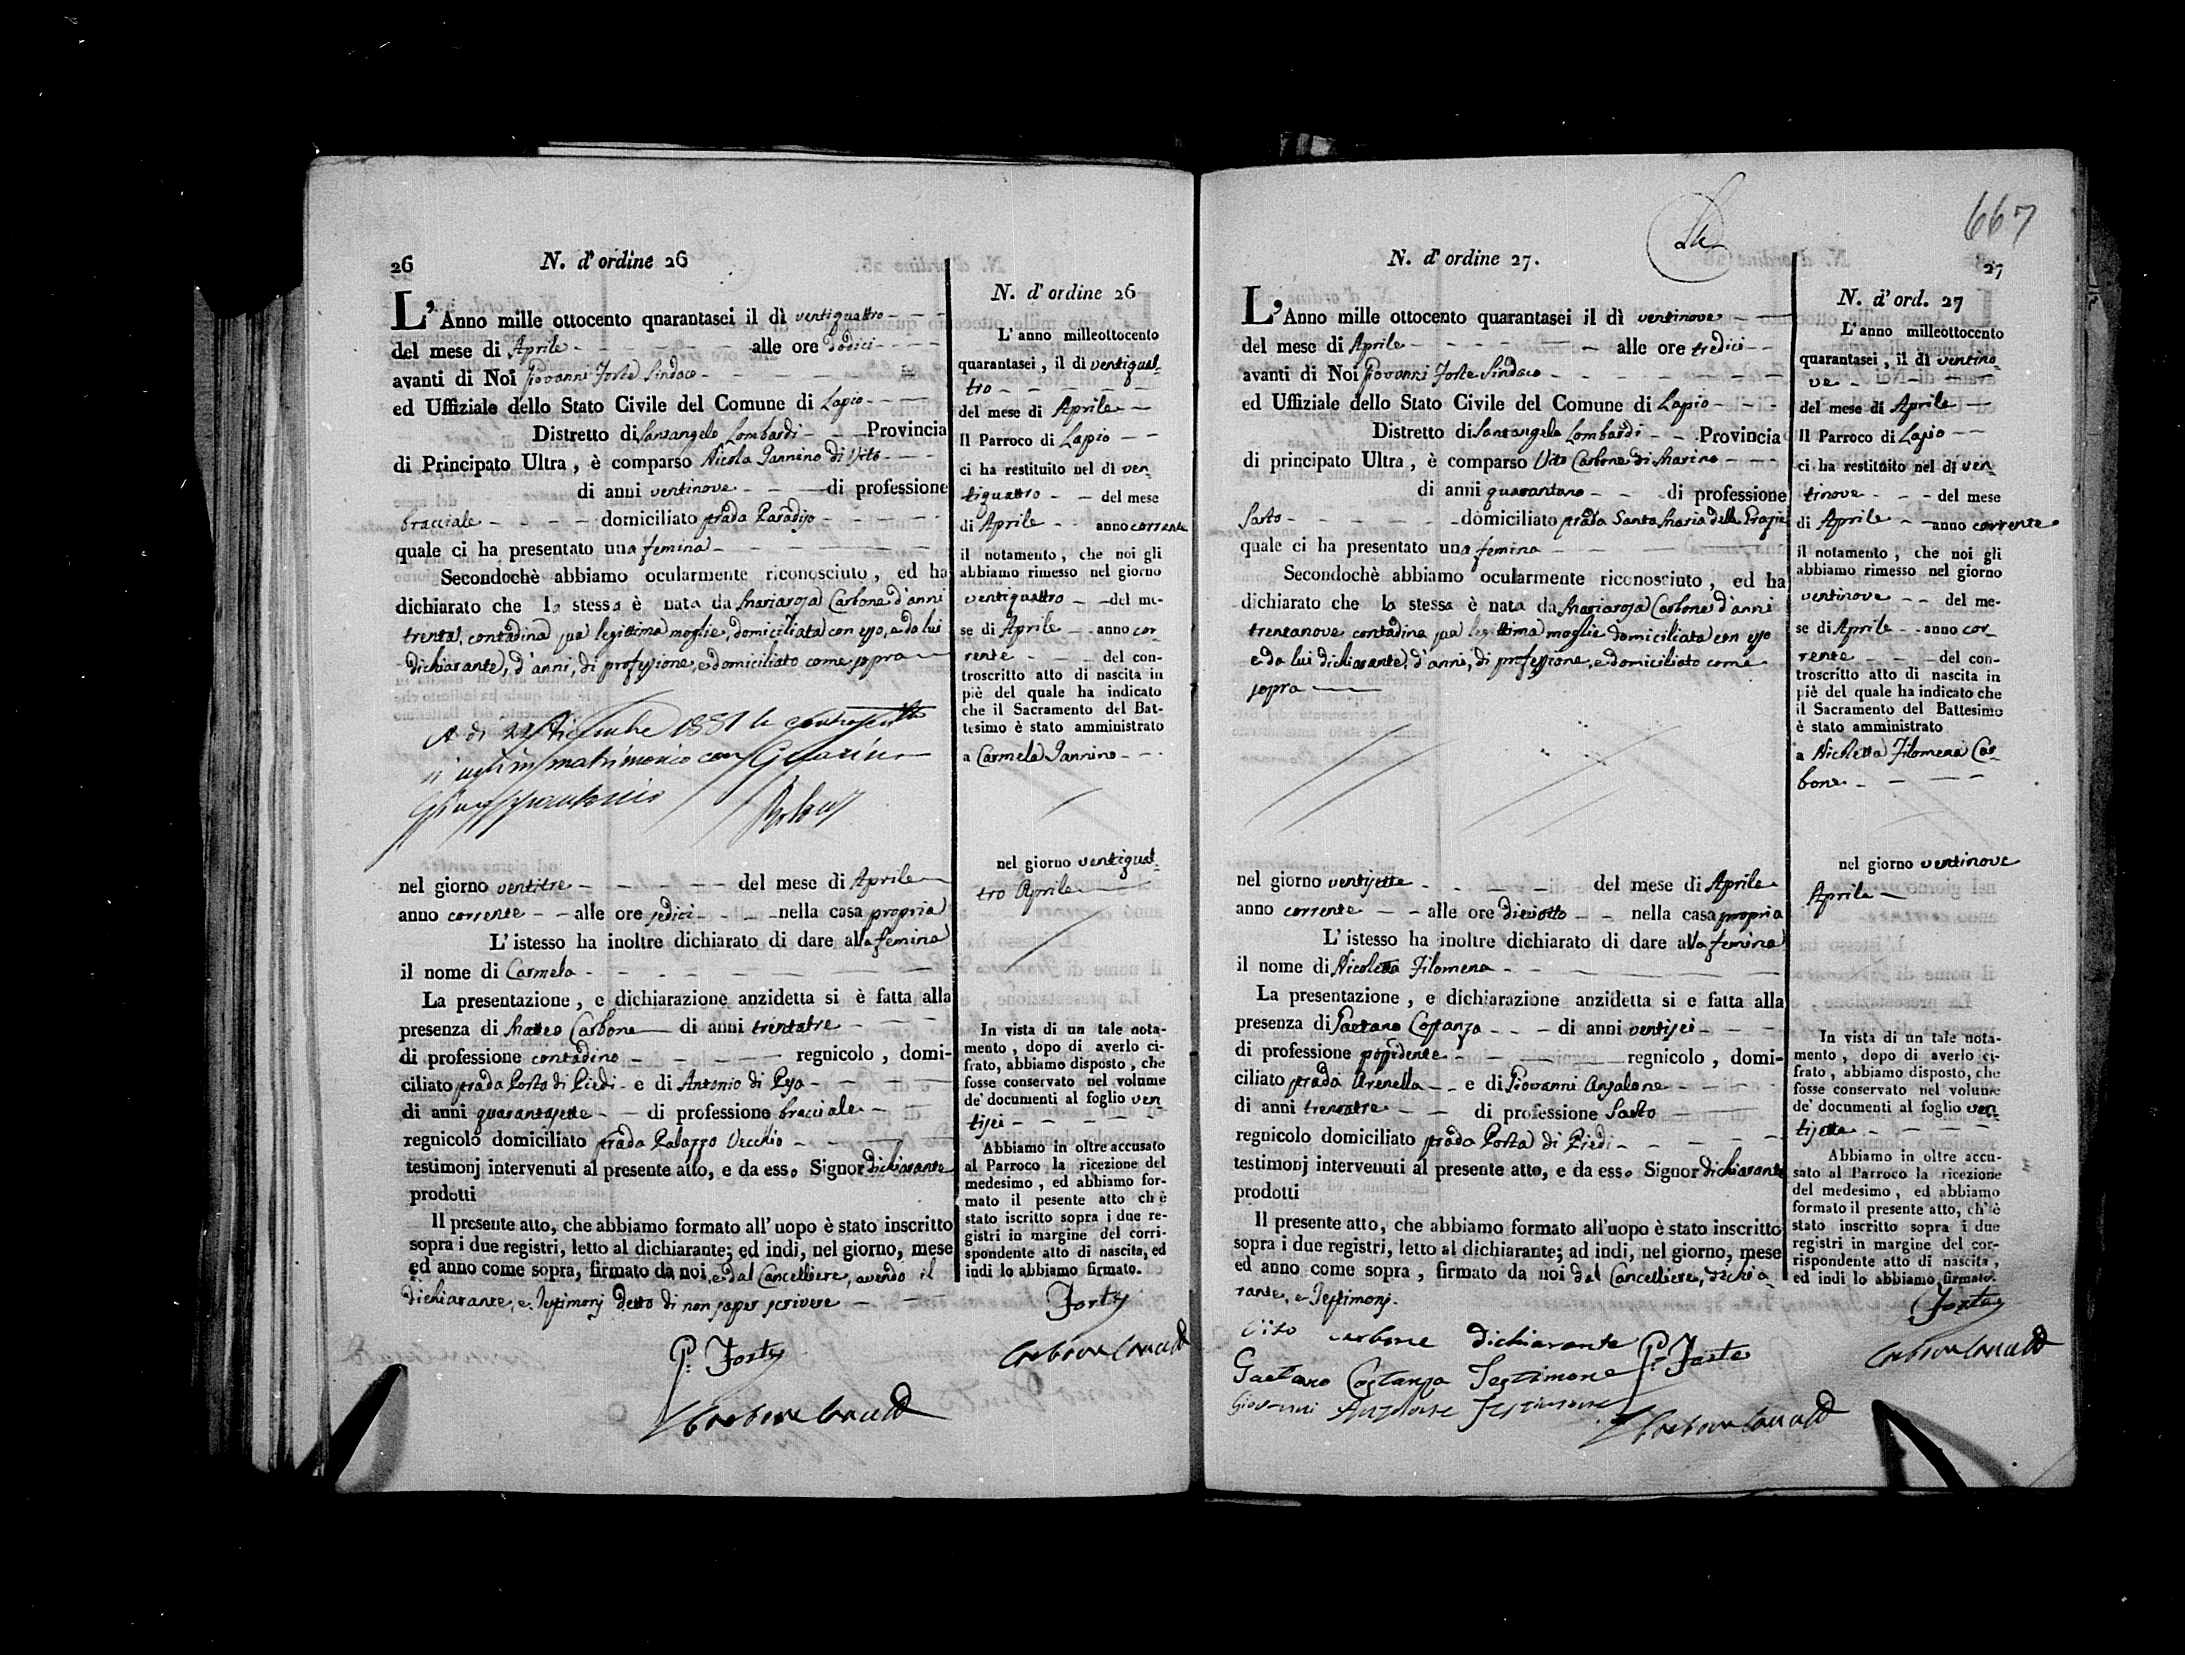 26
N. d'ordine 26
L'Anno mille ottocento quarantasei il dì ventiquattro
del mese di Aprile alle ore dodici
avanti di Noi Giovanni Forte Sindaco
ed Uffiziale dello Stato Civile del Comune di Lapio
Distretto di Santangelo Lombardi Provincia
di Principato Ultra, è comparso Nicola Iannino di Vito
di anni ventinove di professione
bracciale domiciliato strada Paradiso
quale ci ha presentato una femina
Secondochè abbiamo ocularmente riconosciuto, ed ha
dichiarato che la stessa è nata da Mariarosa Carbone d'anni
trenta, contadina sua legittima moglie, domiciliata con esso, e da lui
dichiarante, d'anni, di professione, e domiciliato come sopra
A dì 1881 la controscritta
si unì in matrimonio con Guarino
Giuseppantonio
nel giorno ventitre del mese di Aprile
anno corrente alle ore sedici nella casa propria
L'istesso ha inoltre dichiarato di dare alla femina
il nome di Carmela
La presentazione, e dichiarazione anzidetta si è fatta alla
presenza di Matteo Carbone di anni trentatre
di professione contadino regnicolo, domi-
ciliato strada Porta di Piedi e di Antonio di Peso
di anni quarantasette di professione bracciale
regnicolo domiciliato strada Palazzo Vecchio
testimonj intervenuti al presente atto, e da esso Signor dichiarante
prodotti
Il presente atto, che abbiamo formato all'uopo è stato inscritto
sopra i due registri, letto al dichiarante; ed indi, nel giorno, mese
ed anno come sopra, firmato da noi e dal Cancelliere, avendo il
dichiarante, e Testimonj detto di non saper scrivere
G. Forte
N. d'ordine 26
L'anno milleottocento
quarantasei, il dì ventiquat-
tro
del mese di Aprile
Il Parroco di Lapio
ci ha restituito nel dì ven
tiquattro del mese
di Aprile anno corrente
il notamento, che noi gli
abbiamo rimesso nel giorno
ventiquattro del me-
se di Aprile anno cor-
rente del con-
troscritto atto di nascita in
piè del quale ha indicato
che il Sacramento del Bat-
tesimo è stato amministrato
a Carmela Iannino
nel giorno ventiquat-
tro Aprile
In vista di un tale nota-
mento, dopo di averlo ci-
frato, abbiamo disposto, che
fosse conservato nel volume
de' documenti al foglio ven
tisei
Abbiamo in oltre accusato
al Parroco la ricezione del
medesimo, ed abbiamo for-
mato il pesente atto ch è
stato iscritto sopra i due re-
gistri in margine del corri-
spondente atto di nascita, ed
indi lo abbiamo firmato.
Forte
667
27
N. d'ordine 27.
L'Anno mille ottocento quarantasei il dì ventinove
del mese di Aprile alle ore tredici
avanti di Noi Giovanni Forte Sindaco
ed Uffiziale dello Stato Civile del Comune di Lapio
Distretto di Santangelo Lombardi Provincia
di principato Ultra, è comparso Vito Carbone di Marino
di anni quarantuno di professione
Sarto domiciliato strada Santa Maria delle Grazie
quale ci ha presentato una femina
Secondochè abbiamo ocularmente riconosciuto, ed ha
dichiarato che la stessa è nata da Mariarosa Carbone d'anni
trentanove contadina sua legittima moglie domiciliata con esso
e da lui dichiarante, d'anni, di professione, e domiciliato come
sopra
nel giorno ventisette del mese di Aprile
anno corrente alle ore dieciotto nella casa propria
L'istesso ha inoltre dichiarato di dare alla femina
il nome di Nicoletta Filomena
La presentazione, e dichiarazione anzidetta si e fatta alla
presenza di Gaetano Costanza di anni ventisei
di professione possidente regnicolo, domi-
ciliato strada Arenella e di Giovanni Anzalone
di anni trentatre di professione Sarto
regnicolo domiciliato strada Porta di Piedi
testimonj intervenuti al presente atto, e da esso Signor dichiarante
prodotti
Il presente atto, che abbiamo formato all'uopo è stato inscritto
sopra i due registri, letto al dichiarante; ad indi, nel giorno, mese
ed anno come sopra, firmato da noi dal Cancelliere, dichia
rante, e Testimonj.
Vito Carbone dichiarante G. Forte
Gaetano Costanza Testimone
Giovanni Anzalone Testimone
N. d'ord. 27
L'anno milleottocento
quarantasei, il dì ventino-
ve
del mese di Aprile
Il Parroco di Lapio
ci ha restituito nel dì ven
tinove del mese
di Aprile anno corrente
il notamento, che noi gli
abbiamo rimesso nel giorno
ventinove del me-
se di Aprile anno cor-
rente del con-
troscritto atto di nascita in
piè del quale ha indicato che
il Sacramento del Battesimo
è stato amministrato
a Nicoletta Filomena Car-
bone
nel giorno ventinove
Aprile
In vista di un tale nota-
mento, dopo di averlo ci-
frato, abbiamo disposto, che
fosse conservato nel volume
de' documenti al foglio ven
tisette
Abbiamo in oltre accu-
sato al Parroco la ricezione
del medesimo, ed abbiamo
formato il presente atto, ch'è
stato inscritto sopra i due
registri in margine del cor-
rispondente atto di nascita,
ed indi lo abbiamo firmato.
Forte